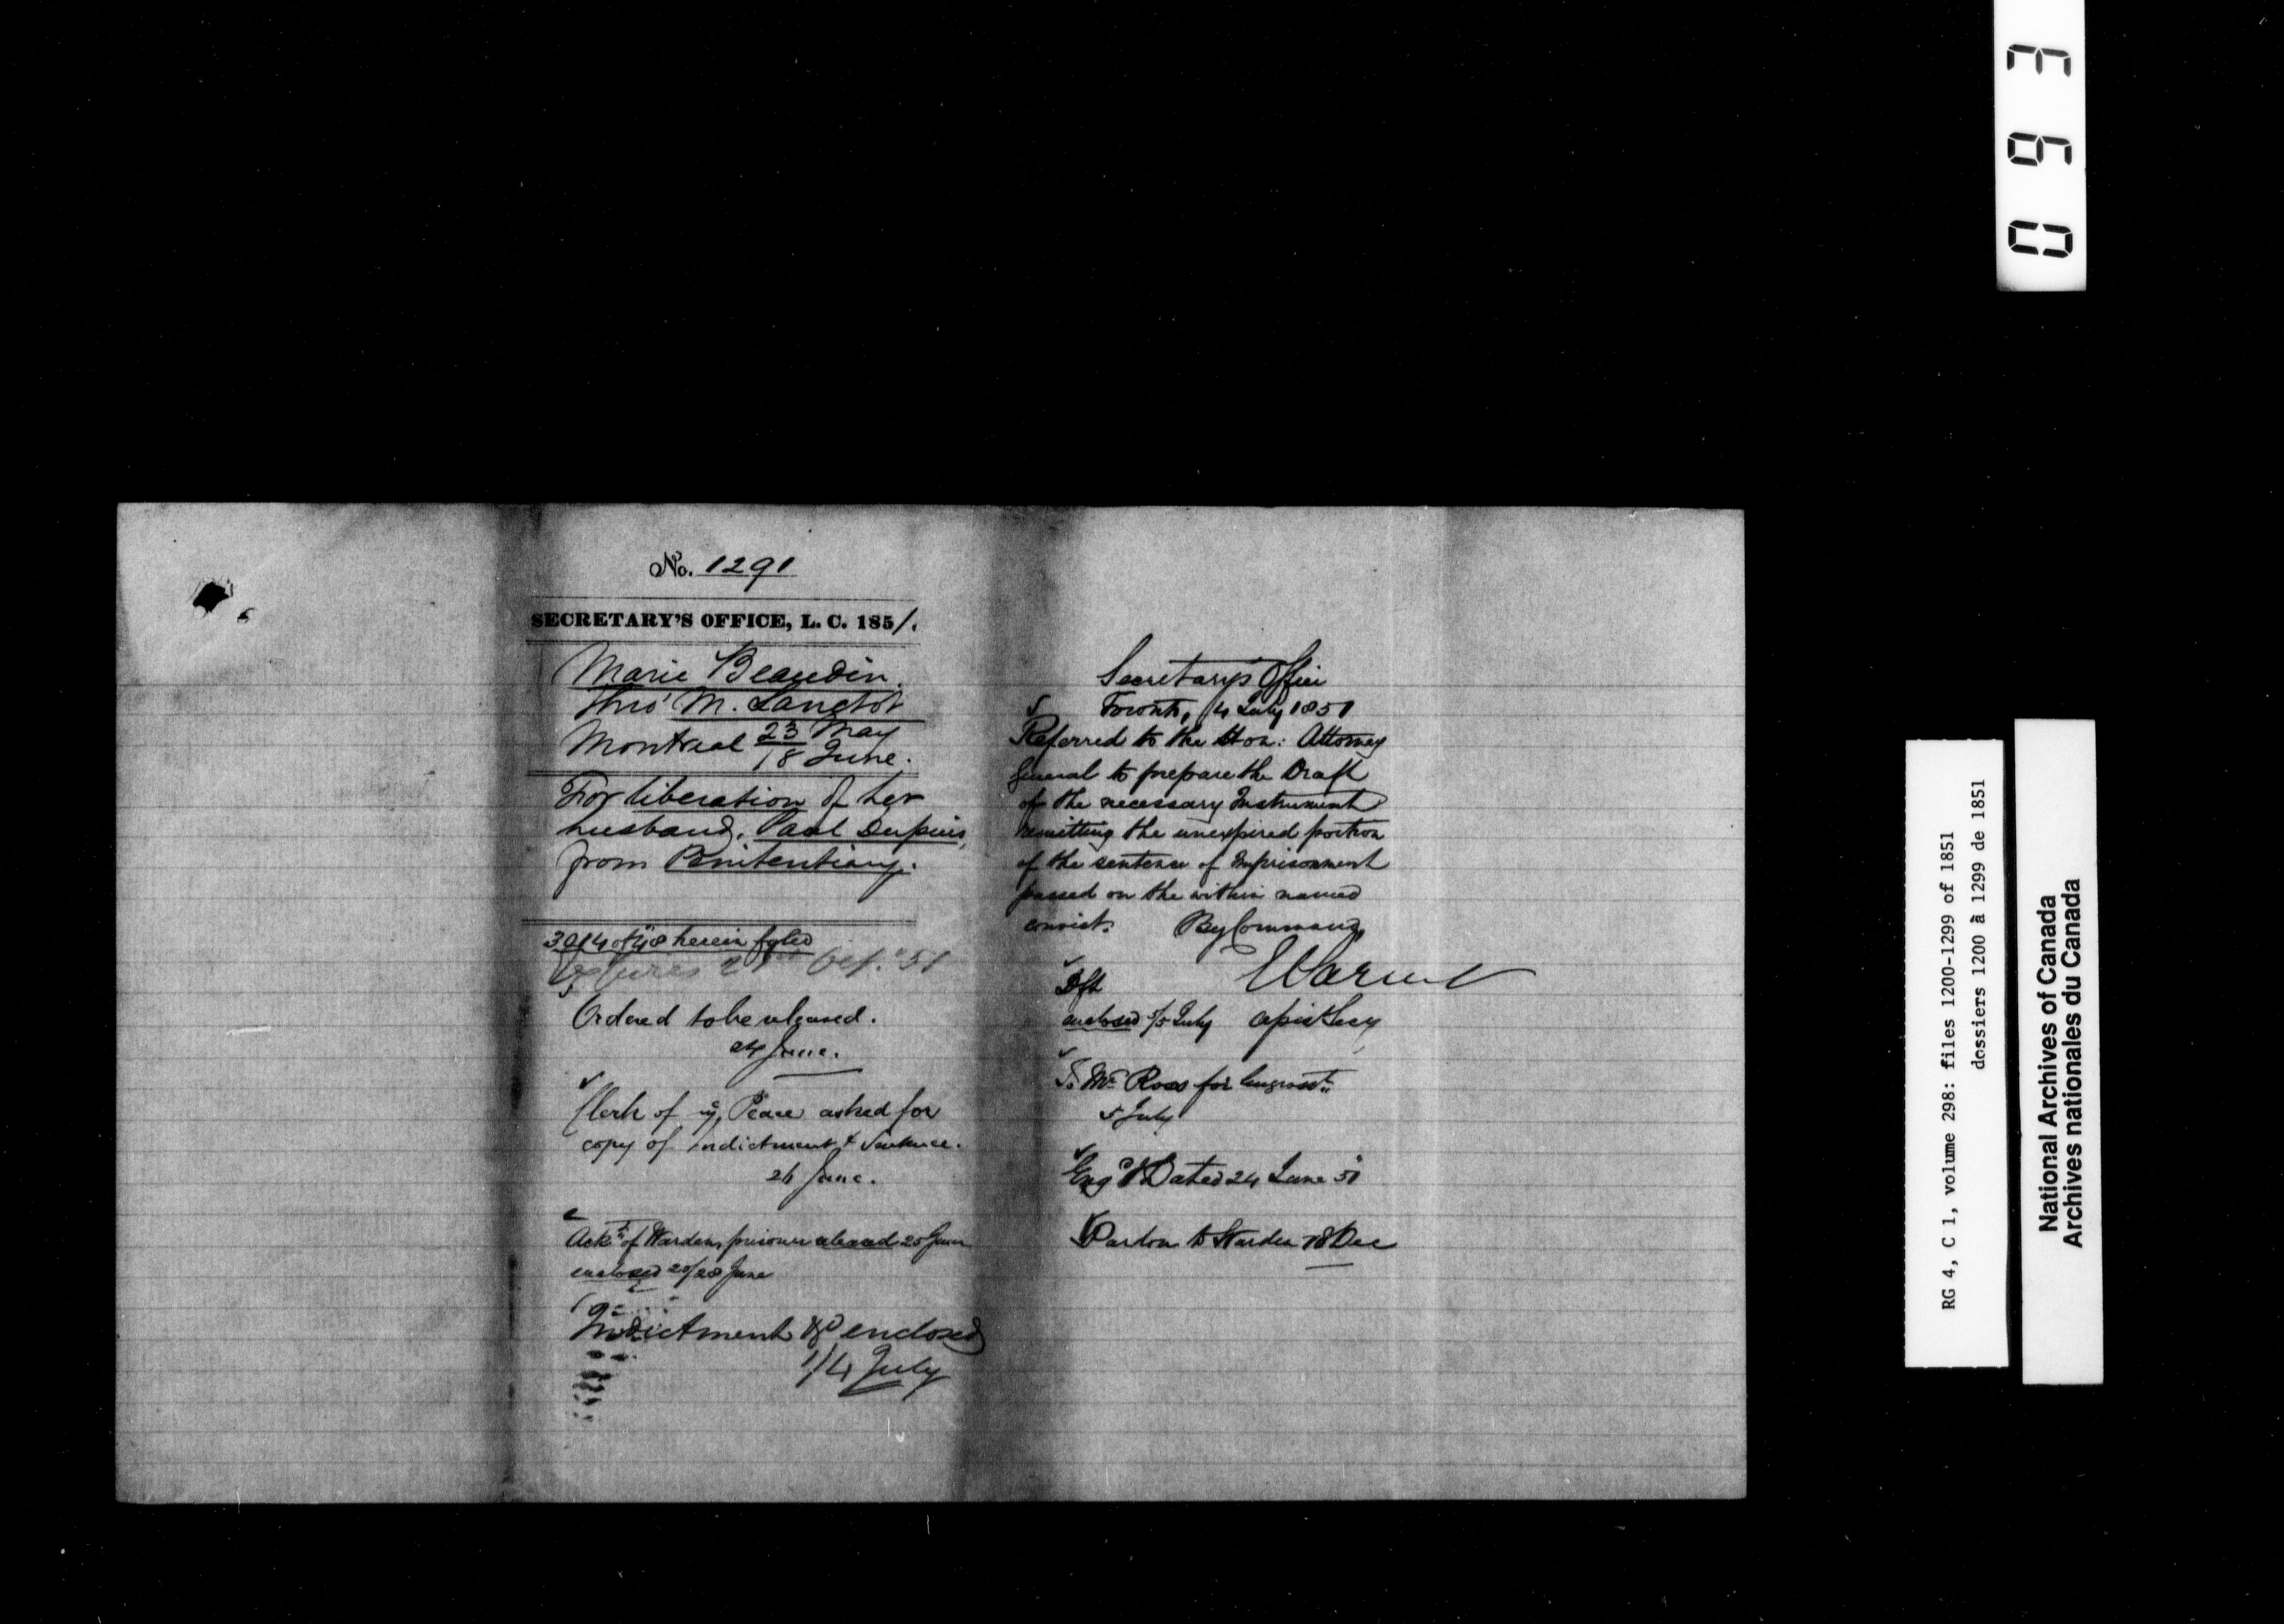 No. 1291
SECRETARY'S OFFICE, L. C. 1851.
Marie Beaudin.
thro' M. Lanctot
Montreal 23 May
18 June.
For liberation of her
husband, Paul Dupuis,
from Penitentiary.
3014 of 48 herein fyled
Ordered to be released.
24 June.
Clerk of ye Peace asked for
copy of Indictment & Sentence.
26 June.
Ackt of Warden, prisoner released 25 June
enclosed 25/28 June
Indictment &c enclosed
1/4 July
Secretary's Office
Toronto, 4 July 1851
Referred to the Hon: Attorney
General to prepare the Draft
of the necessary Instrument
remitting the unexpired portion
of the sentence of Imprisonment
passed on the within named
convict. By Command,
Dft
enclosed 5/5 July
To Mr Ross for Engrosst
5 July
Engd & Dated 24 June 51
Pardon to Warden 18 Dec
093
RG 4, C 1, volume 298: files 1200-1299 of 1851
dossiers 1200 à 1299 de 1851
National Archives of Canada
Archives nationales du Canada